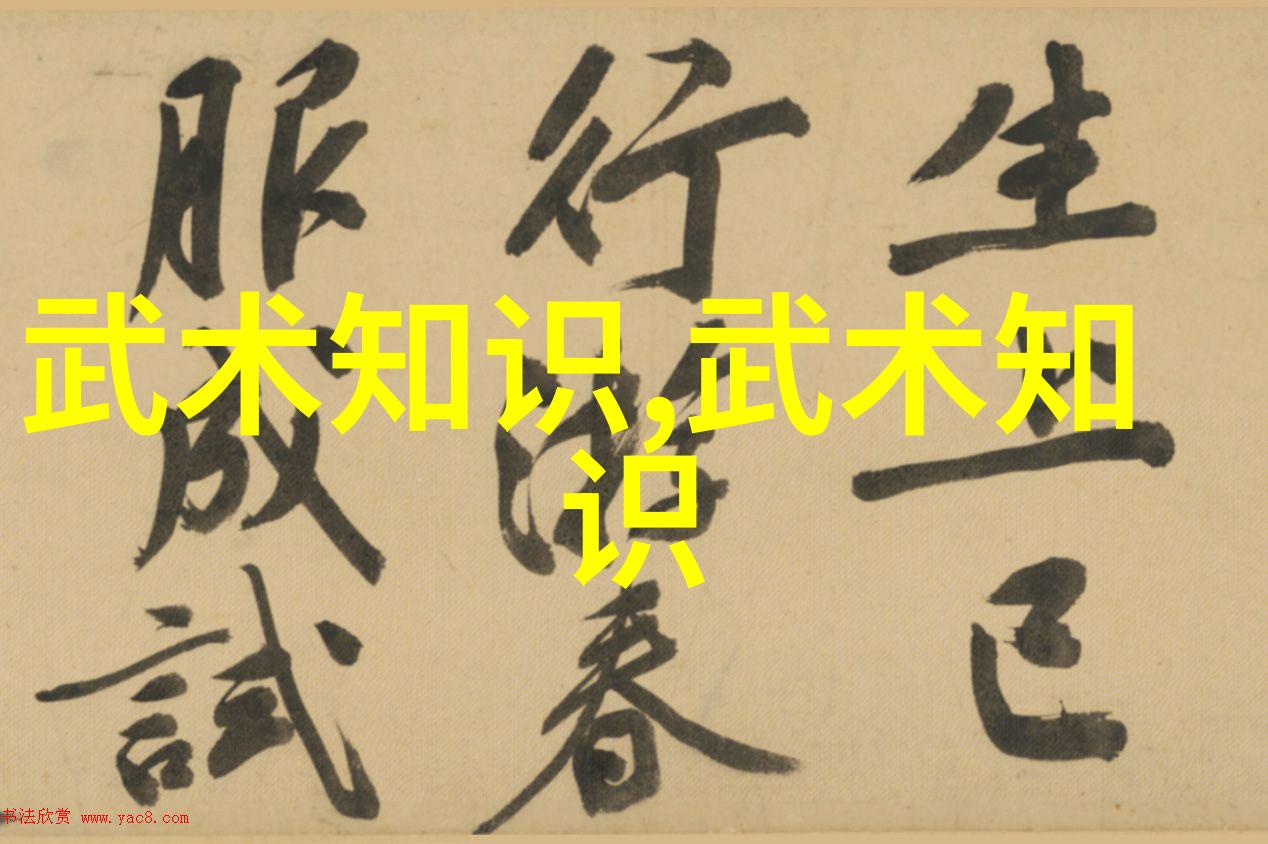 生上巳
行春
服成試
武术知识,武术知
识
书法欣赏 www.yac8.com